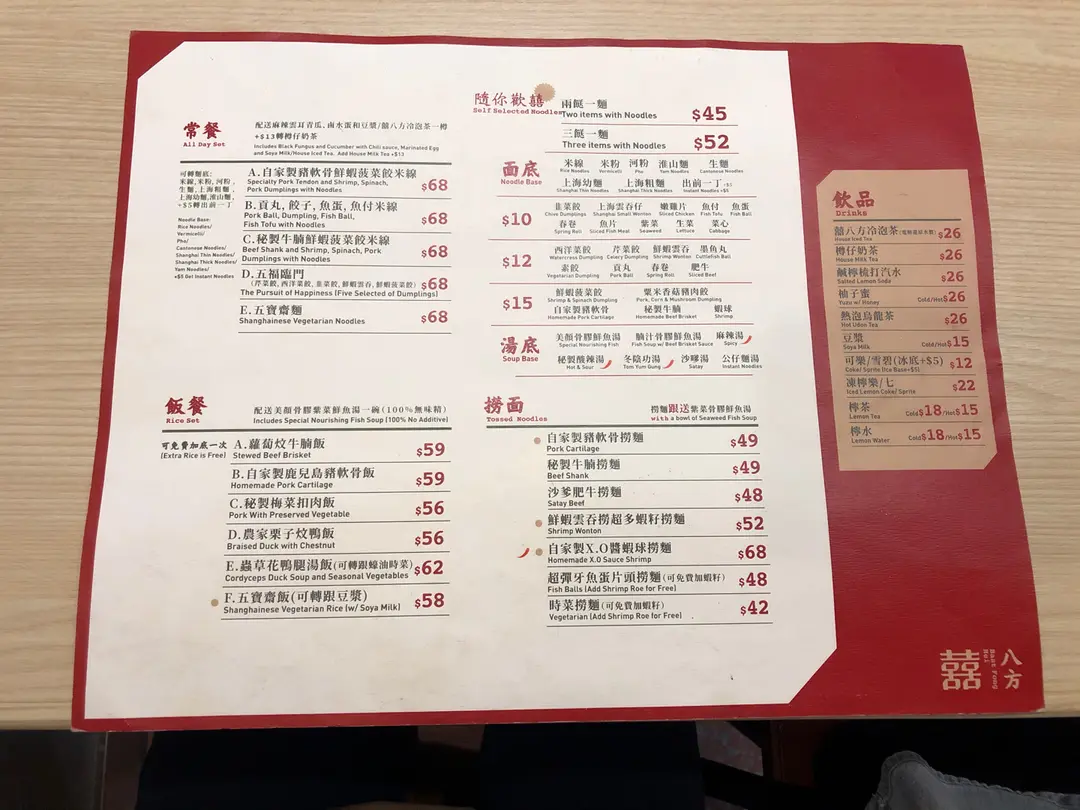 常餐
All Day Set
配送麻辣雲耳青瓜, 鹵水蛋和豆漿/囍八方冷泡茶一樽
+$13轉樽仔奶茶
Includes Black Fungus and Cucumber with Chili sauce, Marinated Egg
and Soya Milk/House Iced Tea. Add House Milk Tea +$13
可轉麵底:
米線,米粉,河粉,
生麵,上海粗麵,
上海幼麵,淮山麵,
+$5轉出前一丁
Noodle Base:
Rice Noodles/
Vermicelli/
Pho/
Cantonese Noodles/
Shanghai Thin Noodles/
Shanghai Thick Noodles/
Yam Noodles/
+$5 for Instant Noodles
A.自家製豬軟骨鮮蝦菠菜餃米線
Specialty Pork Tendon and Shrimp, Spinach,
Pork Dumplings with Noodles
$68
B.貢丸, 餃子, 魚蛋, 魚付米線
Pork Ball, Dumpling, Fish Ball,
Fish Tofu with Noodles
$68
C.秘製牛腩鮮蝦菠菜餃米線
Beef Shank and Shrimp, Spinach, Pork
Dumplings with Noodles
$68
D.五福臨門
(芹菜餃, 西洋菜餃, 韭菜餃, 鮮蝦雲吞, 鮮蝦菠菜餃)
The Pursuit of Happiness (Five Selected of Dumplings)
$68
E.五寶齋麵
Shanghainese Vegetarian Noodles
$68
隨你歡囍
Self Selected Noodles
兩餸一麵
Two items with Noodles
$45
三餸一麵
Three items with Noodles
$52
面底
Noodle Base
米線 米粉 河粉 淮山麵 生麵
Rice Noodles Vermicelli Pho Yam Noodles Cantonese Noodles
上海幼麵 上海粗麵 出前一丁+$5
Shanghai Thin Noodles Shanghai Thick Noodles Instant Noodles +$5
$10
韭菜餃 上海雲吞仔 嫩雞片 魚付 魚蛋
Chive Dumplings Shanghai Small Wonton Sliced Chicken Fish Tofu Fish Ball
春卷 魚片 紫菜 生菜 菜心
Spring Roll Sliced Fish Meat Seaweed Lettuce Cabbage
$12
西洋菜餃 芹菜餃 鮮蝦雲吞 墨魚丸
Watercress Dumpling Celery Dumpling Shrimp Wonton Cuttlefish Ball
素餃 貢丸 春卷 肥牛
Vegetarian Dumpling Pork Ball Spring Roll Sliced Beef
$15
鮮蝦菠菜餃 粟米香菇豬肉餃
Shrimp & Spinach Dumpling Pork, Corn & Mushroom Dumpling
自家製豬軟骨 秘製牛腩 蝦球
Homemade Pork Cartilage Homemade Beef Brisket Shrimp
湯底
Soup Base
美顏骨膠鮮魚湯 腩汁骨膠鮮魚湯 麻辣湯
Special Nourishing Fish Fish Soup w/ Beef Brisket Sauce Spicy
秘製酸辣湯 冬陰功湯 沙嗲湯 公仔麵湯
Hot & Sour Tom Yum Gung Satay Instant Noodles
飯餐
Rice Set
配送美顏骨膠紫菜鮮魚湯一碗(100%無味精)
Includes Special Nourishing Fish Soup (100% No Additive)
可免費加底一次
(Extra Rice is Free)
A.蘿蔔炆牛腩飯
Stewed Beef Brisket
$59
B.自家製鹿兒島豬軟骨飯
Homemade Pork Cartilage
$59
C.秘製梅菜扣肉飯
Pork With Preserved Vegetable
$56
D.農家栗子炆鴨飯
Braised Duck with Chestnut
$56
E.蟲草花鴨腿湯飯(可轉跟蠔油時菜)
Cordyceps Duck Soup and Seasonal Vegetables
$62
F.五寶齋飯(可轉跟豆漿)
Shanghainese Vegetarian Rice (w/ Soya Milk)
$58
撈面
Tossed Noodles
撈麵跟送紫菜骨膠鮮魚湯
with a bowl of Seaweed Fish Soup
自家製豬軟骨撈麵
Pork Cartilage
$49
秘製牛腩撈麵
Beef Shank
$49
沙爹肥牛撈麵
Satay Beef
$48
鮮蝦雲吞撈超多蝦籽撈麵
Shrimp Wonton
$52
自家製X.O醬蝦球撈麵
Homemade X.O Sauce Shrimp
$68
超彈牙魚蛋片頭撈麵(可免費加蝦籽)
Fish Balls (Add Shrimp Roe for Free)
$48
時菜撈麵(可免費加蝦籽)
Vegetarian (Add Shrimp Roe for Free)
$42
飲品
Drinks
囍八方冷泡茶
House Iced Tea
$26
樽仔奶茶
House Milk Tea
$26
鹹檸梳打汽水
Salted Lemon Soda
$26
柚子蜜
Yuzu w/ Honey
Cold/Hot $26
熱泡烏龍茶
Hot Udon Tea
$26
豆漿
Soya Milk
Cold/Hot $15
可樂/雪碧(冰底+$5)
Coke/ Sprite (Ice Base+$5)
$12
凍檸樂/七
Iced Lemon Coke/ Sprite
$22
檸茶
Lemon Tea
Cold$18/Hot$15
檸水
Lemon Water
Cold$18/Hot$15
囍
八方